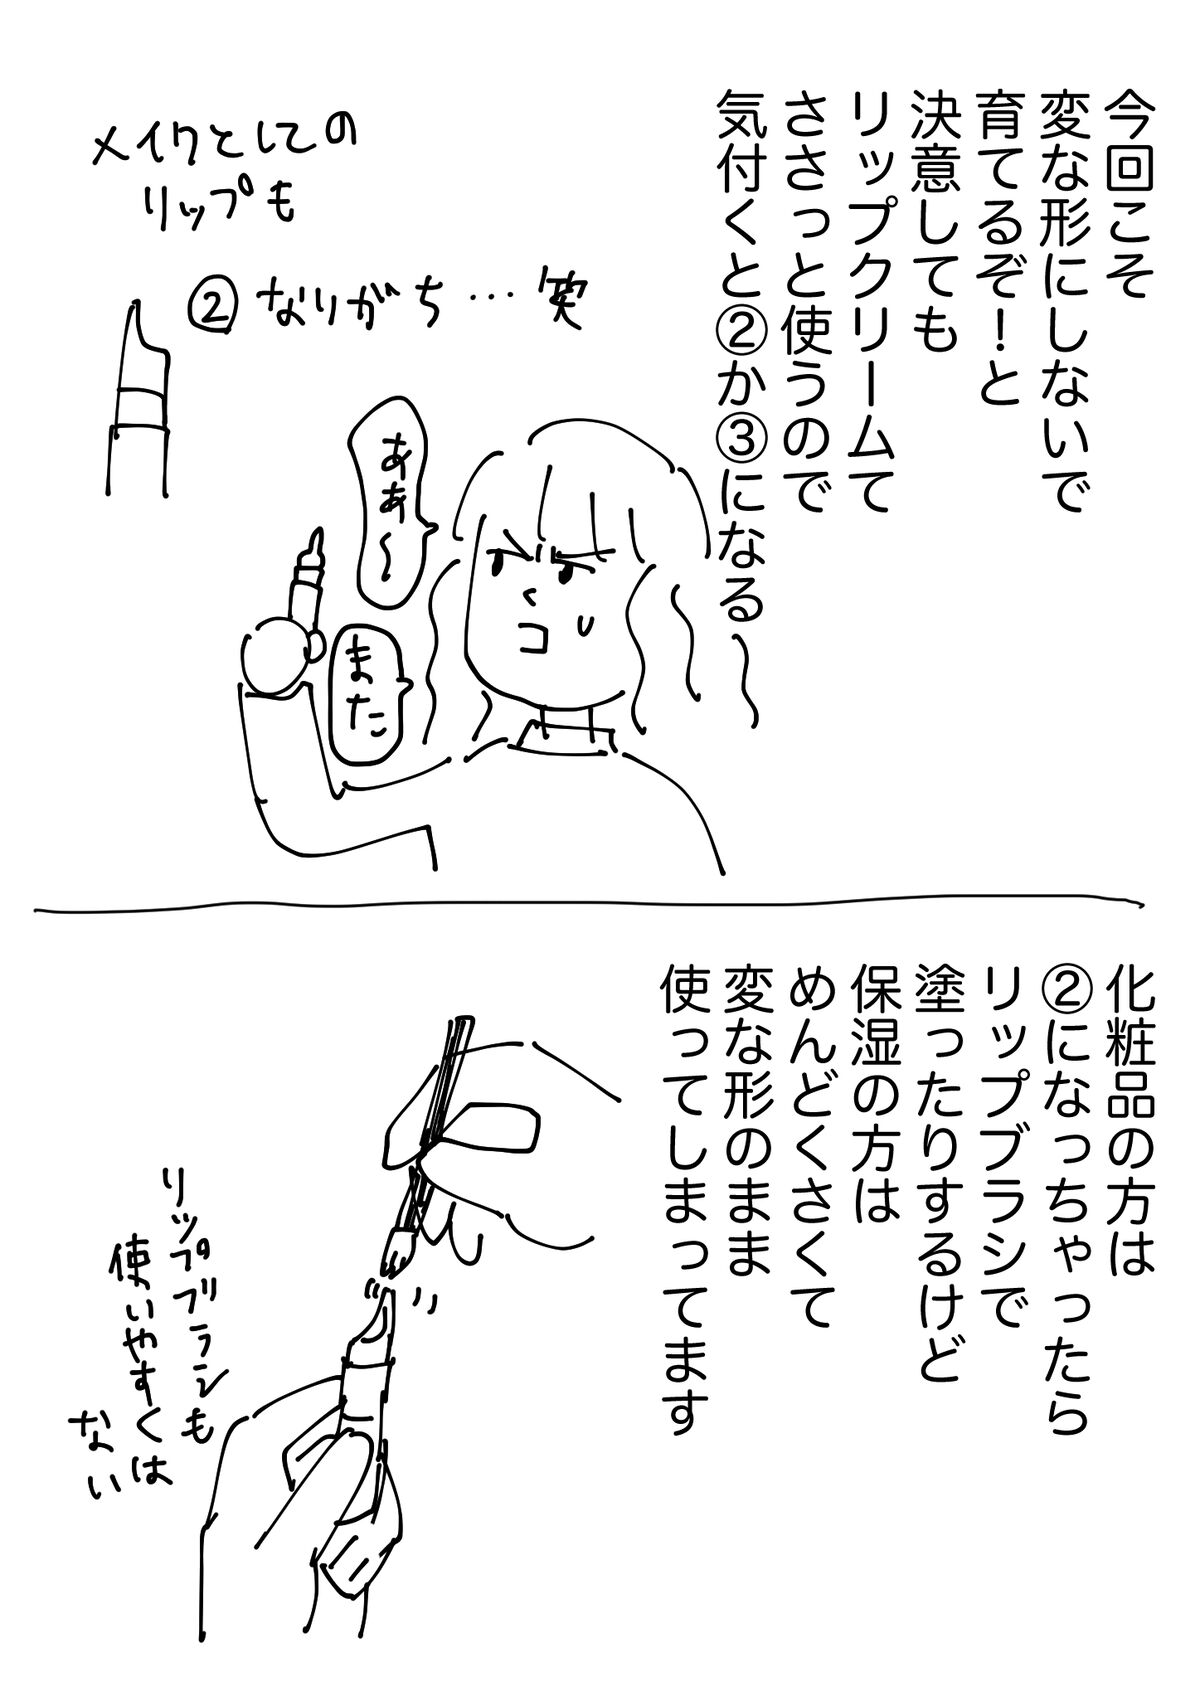 今回こそ
変な形にしないで
育てるぞ！と
決意しても
リップクリームて
ささっと使うので
気付くと②か③になる
メイクとしての
リップも
②なりがち…笑
ああ〜
また
化粧品の方は
②になっちゃったら
リップブラシで
塗ったりするけど
保湿の方は
めんどくさくて
変な形のまま
使ってしまってます
リップブラシも
使いやすくは
ない